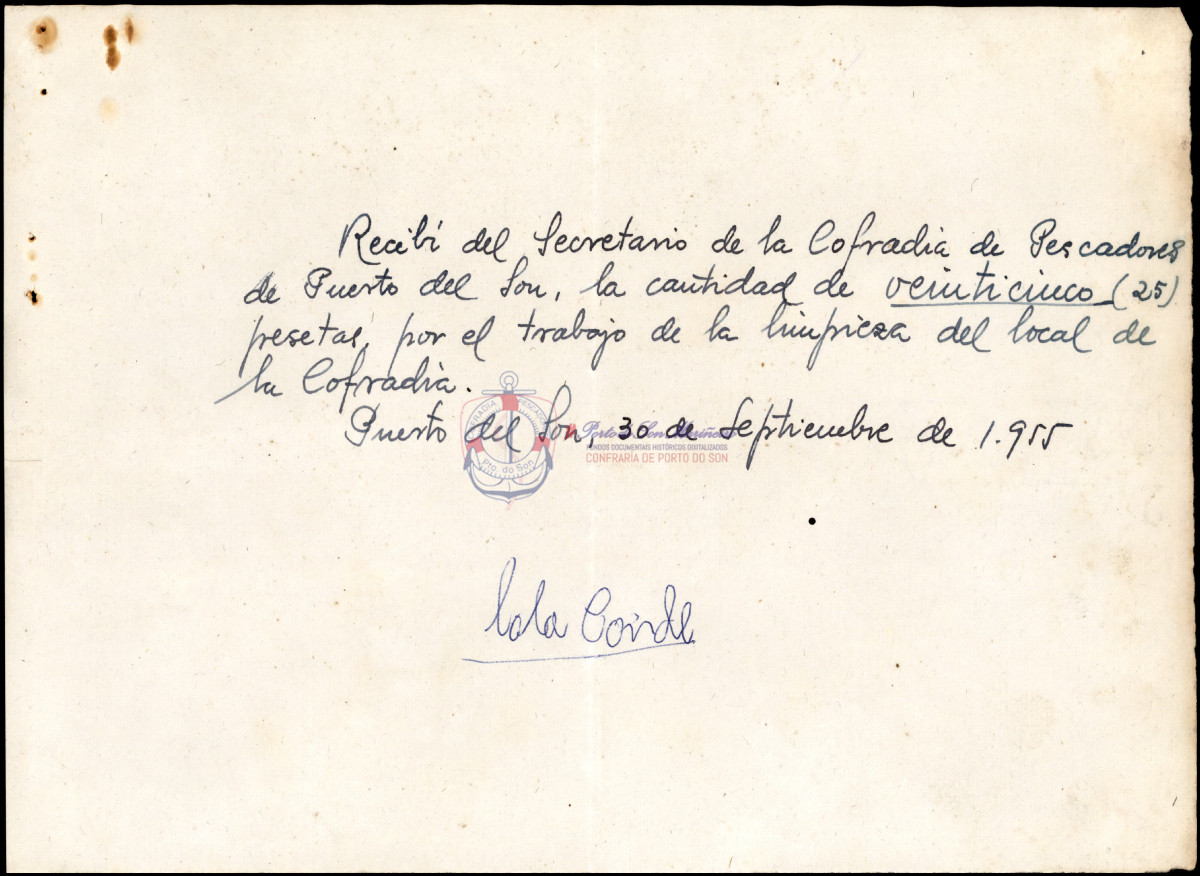 Recibí del Secretario de la Cofradia de Pescadores
de Puerto del Son, la cantidad de veinticinco (25)
pesetas, por el trabajo de la limpieza del local de
la Cofradia.
Puerto del Son, 30 de Septiembre de 1.955
FONDOS DOCUMENTAIS HISTÓRICOS DIXITALIZADOS
CONFRARÍA DE PORTO DO SON
Pto. do Son
lola Conde